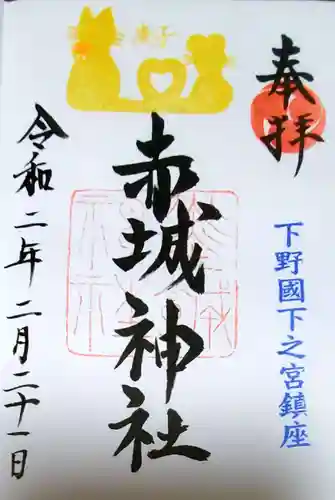 奉拝
下野國下之宮鎮座
赤城神社
令和二年二月二十一日